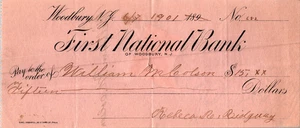 Woodbury, N.J. 1901 189 No.
First National Bank
OF WOODBURY, N.J.
Pay to the order of William M Colson $15 xx
Fifteen Dollars
Ridgway